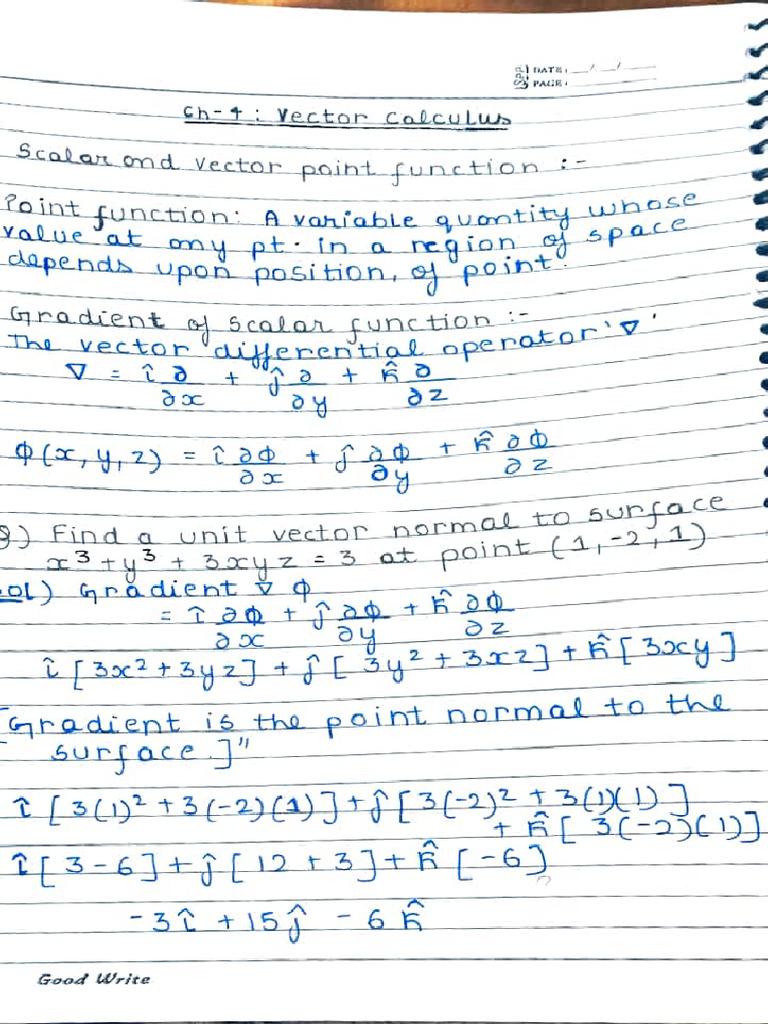 DATE: __/__/__
PAGE:
Ch-4: Vector Calculus
Scalar and vector point function :-
Point function: A variable quantity whose
value at any pt. in a region of space
depends upon position, of point.
Gradient of scalar function :-
The vector differential operator '∇'
∇ = î ∂/∂x + ĵ ∂/∂y + k̂ ∂/∂z
Φ(x, y, z) = î ∂Φ/∂x + ĵ ∂Φ/∂y + k̂ ∂Φ/∂z
Q) Find a unit vector normal to surface
x³ + y³ + 3xyz = 3 at point (1, -2, 1)
Sol) Gradient ∇ Φ
= î ∂Φ/∂x + ĵ ∂Φ/∂y + k̂ ∂Φ/∂z
î [3x² + 3yz] + ĵ [3y² + 3xz] + k̂ [3xy]
[Gradient is the point normal to the
surface.]"
î [3(1)² + 3(-2)(1)] + ĵ [3(-2)² + 3(1)(1)]
+ k̂ [3(-2)(1)]
î [3 - 6] + ĵ [12 + 3] + k̂ [-6]
-3î + 15ĵ - 6k̂
Good Write